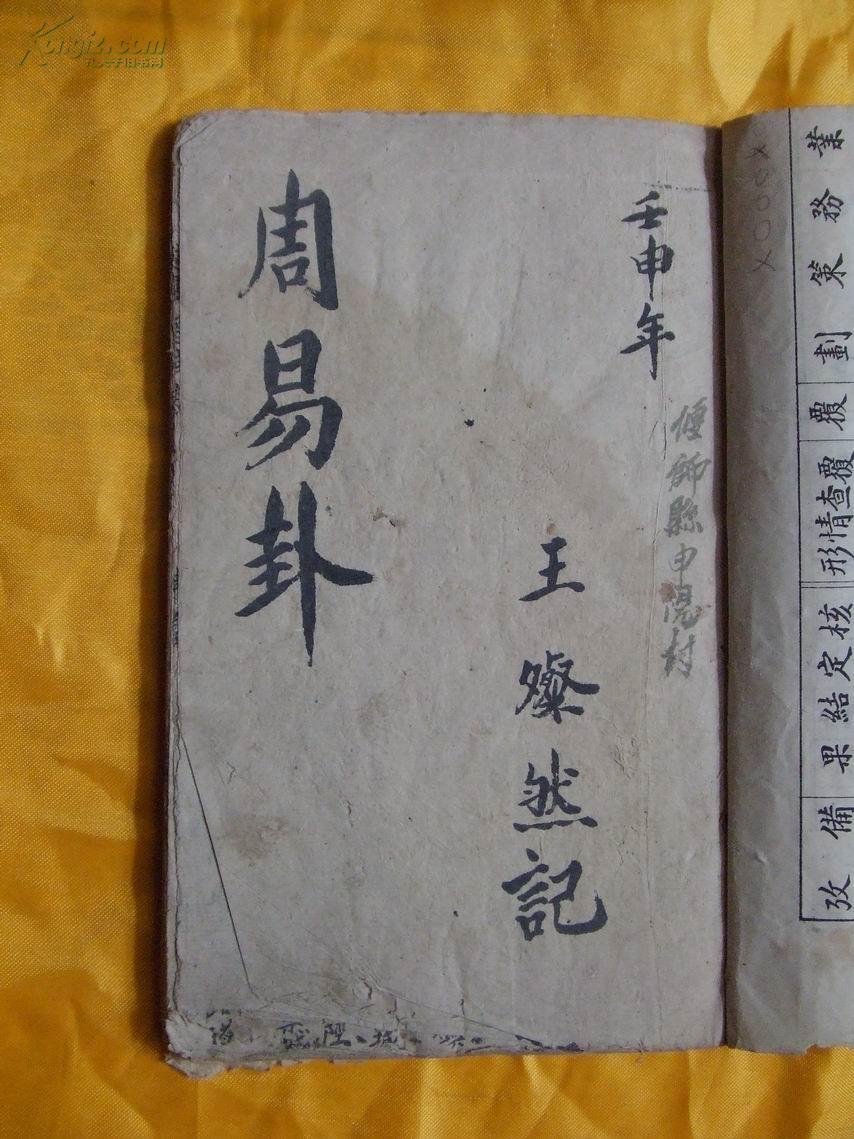 Kongfz.com
孔夫子旧书网
業務策劃
覆
覆查情形
核定結果
備攷
偃師縣申
村
壬申年
王燦然記
周易卦